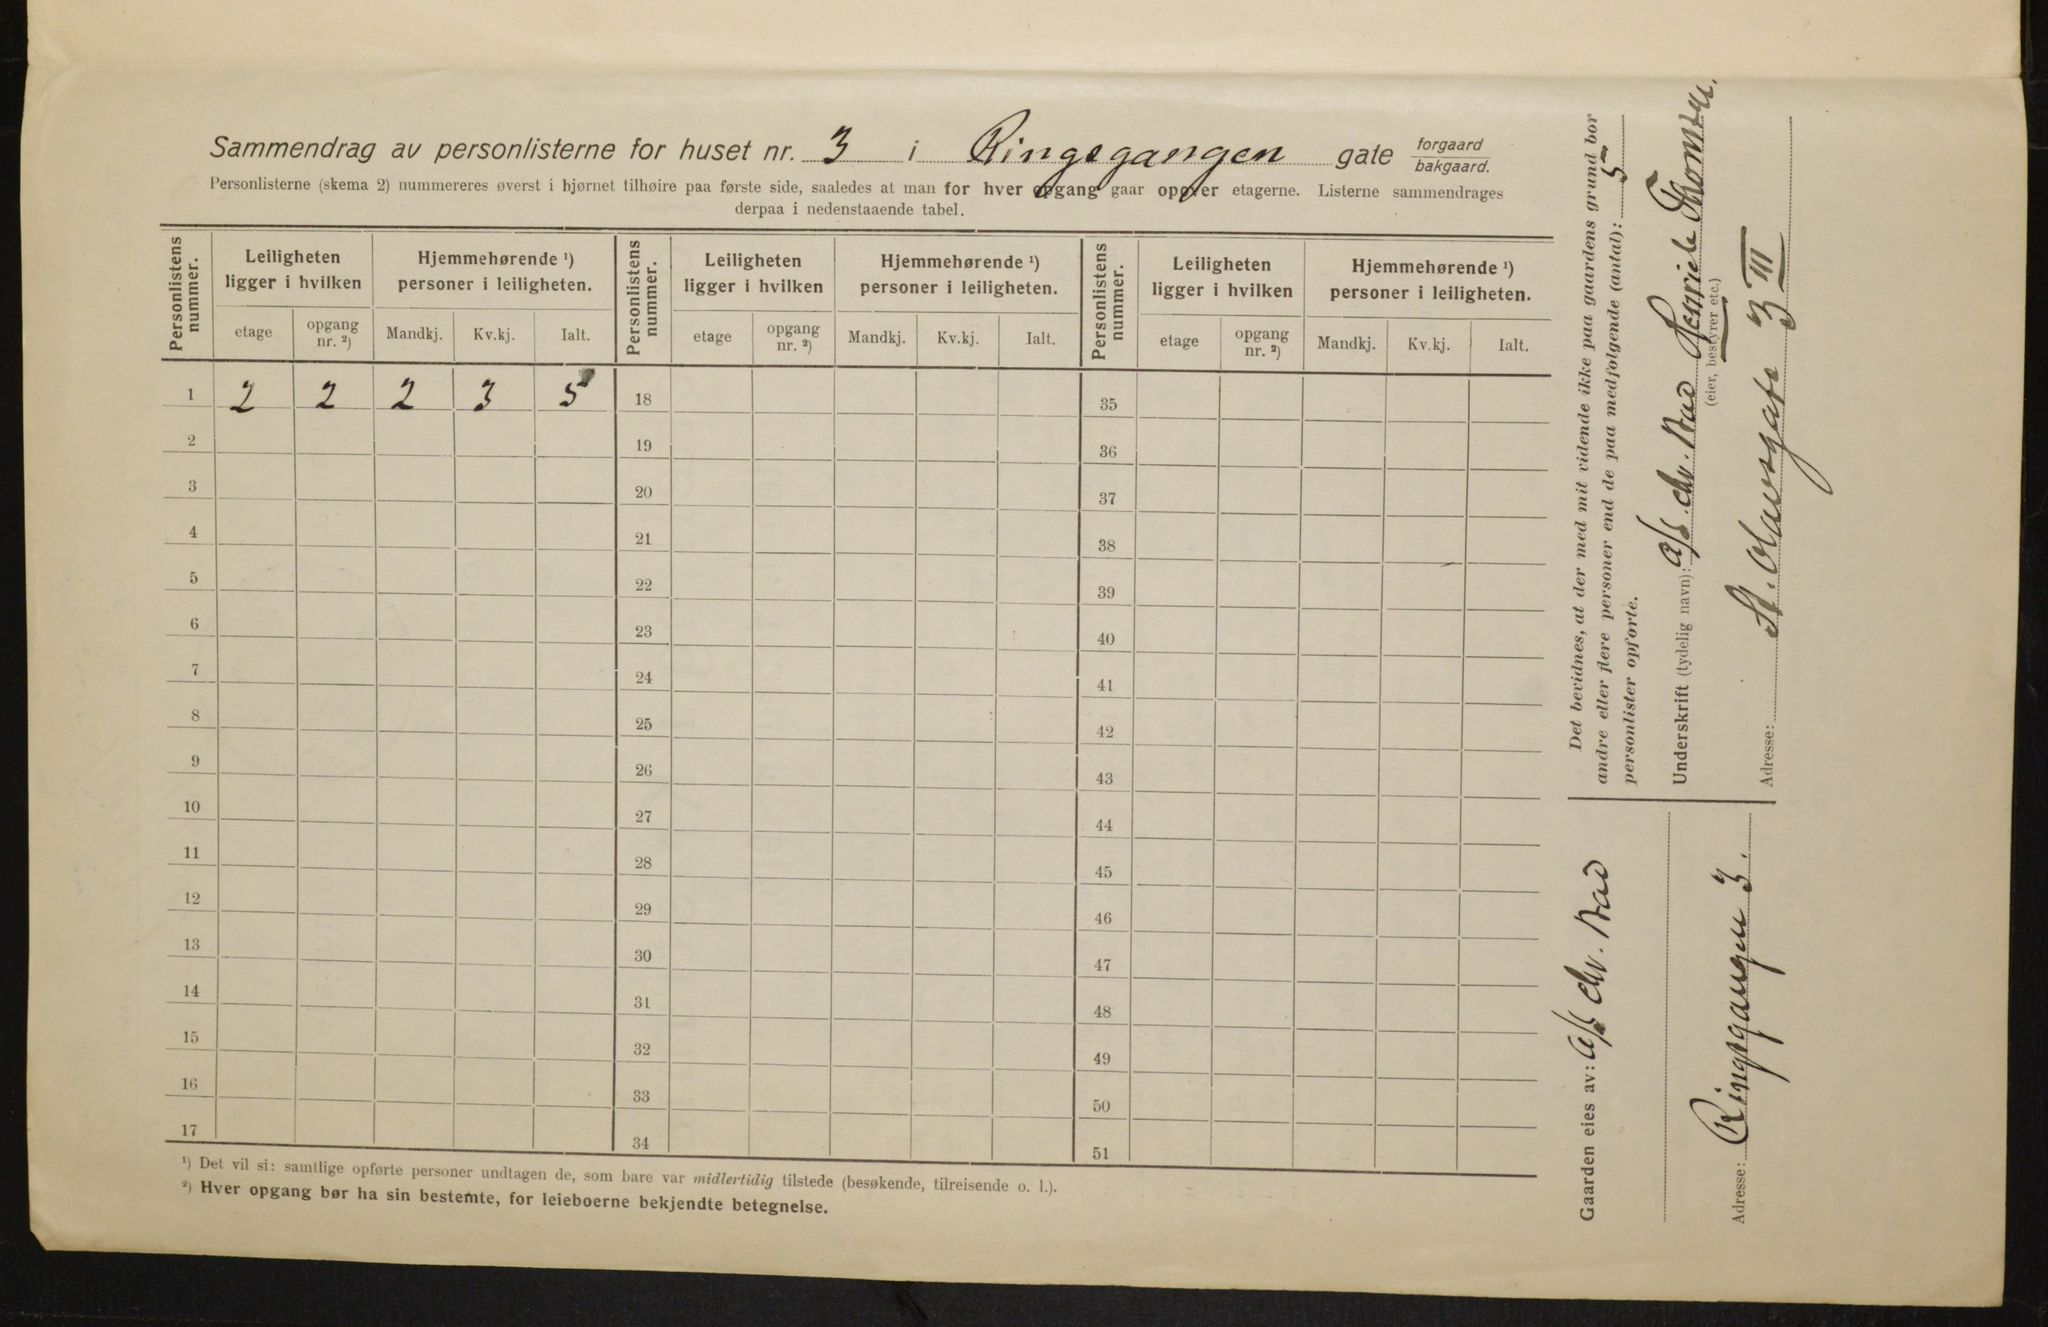 Sammendrag av personlisterne for huset nr. 3 i Ringsgangen gate forgaard bakgaard.
Personlisterne (skema 2) nummereres øverst i hjørnet tilhøire paa første side, saaledes at man for hver opgang gaar opover etagerne. Listerne sammendrages
derpaa i nedenstaaende tabel.
Personlistens nummer. Leiligheten ligger i hvilken Hjemmehørende ¹) personer i leiligheten. Personlistens nummer. Leiligheten ligger i hvilken Hjemmehørende ¹) personer i leiligheten. Personlistens nummer. Leiligheten ligger i hvilken Hjemmehørende ¹) personer i leiligheten.
etage opgang nr. ²) Mandkj. Kv.kj. Ialt. etage opgang nr. ²) Mandkj. Kv.kj. Ialt. etage opgang nr. ²) Mandkj. Kv.kj. Ialt.
1 2 2 2 3 5 18 35
2 19 36
3 20 37
4 21 38
5 22 39
6 23 40
7 24 41
8 25 42
9 26 43
10 27 44
11 28 45
12 29 46
13 30 47
14 31 48
15 32 49
16 33 50
17 34 51
¹) Det vil si: samtlige opførte personer undtagen de, som bare var midlertidig tilstede (besøkende, tilreisende o. l.).
²) Hver opgang bør ha sin bestemte, for leieboerne bekjendte betegnelse.
Det bevidnes, at der med mit vidende ikke paa gaardens grund bor
andre eller flere personer end de paa medfølgende (antal): 5
personlister opførte.
Underskrift (tydelig navn): a/s Chr. Aad Henriette Thomsen.
(eier, bestyrer etc.)
Adresse: St. Olavsgate 3 III
Gaarden eies av: a/s Chr. Aad
Adresse: Ringsgangen 3.